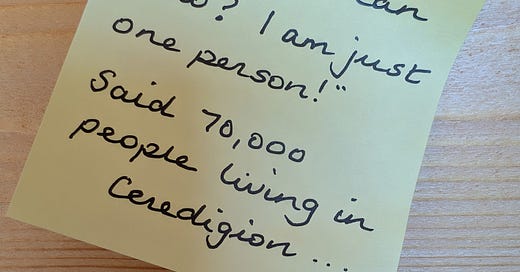 can
? I am just
one person!"
Said 70,000
people living in
Ceredigion ...